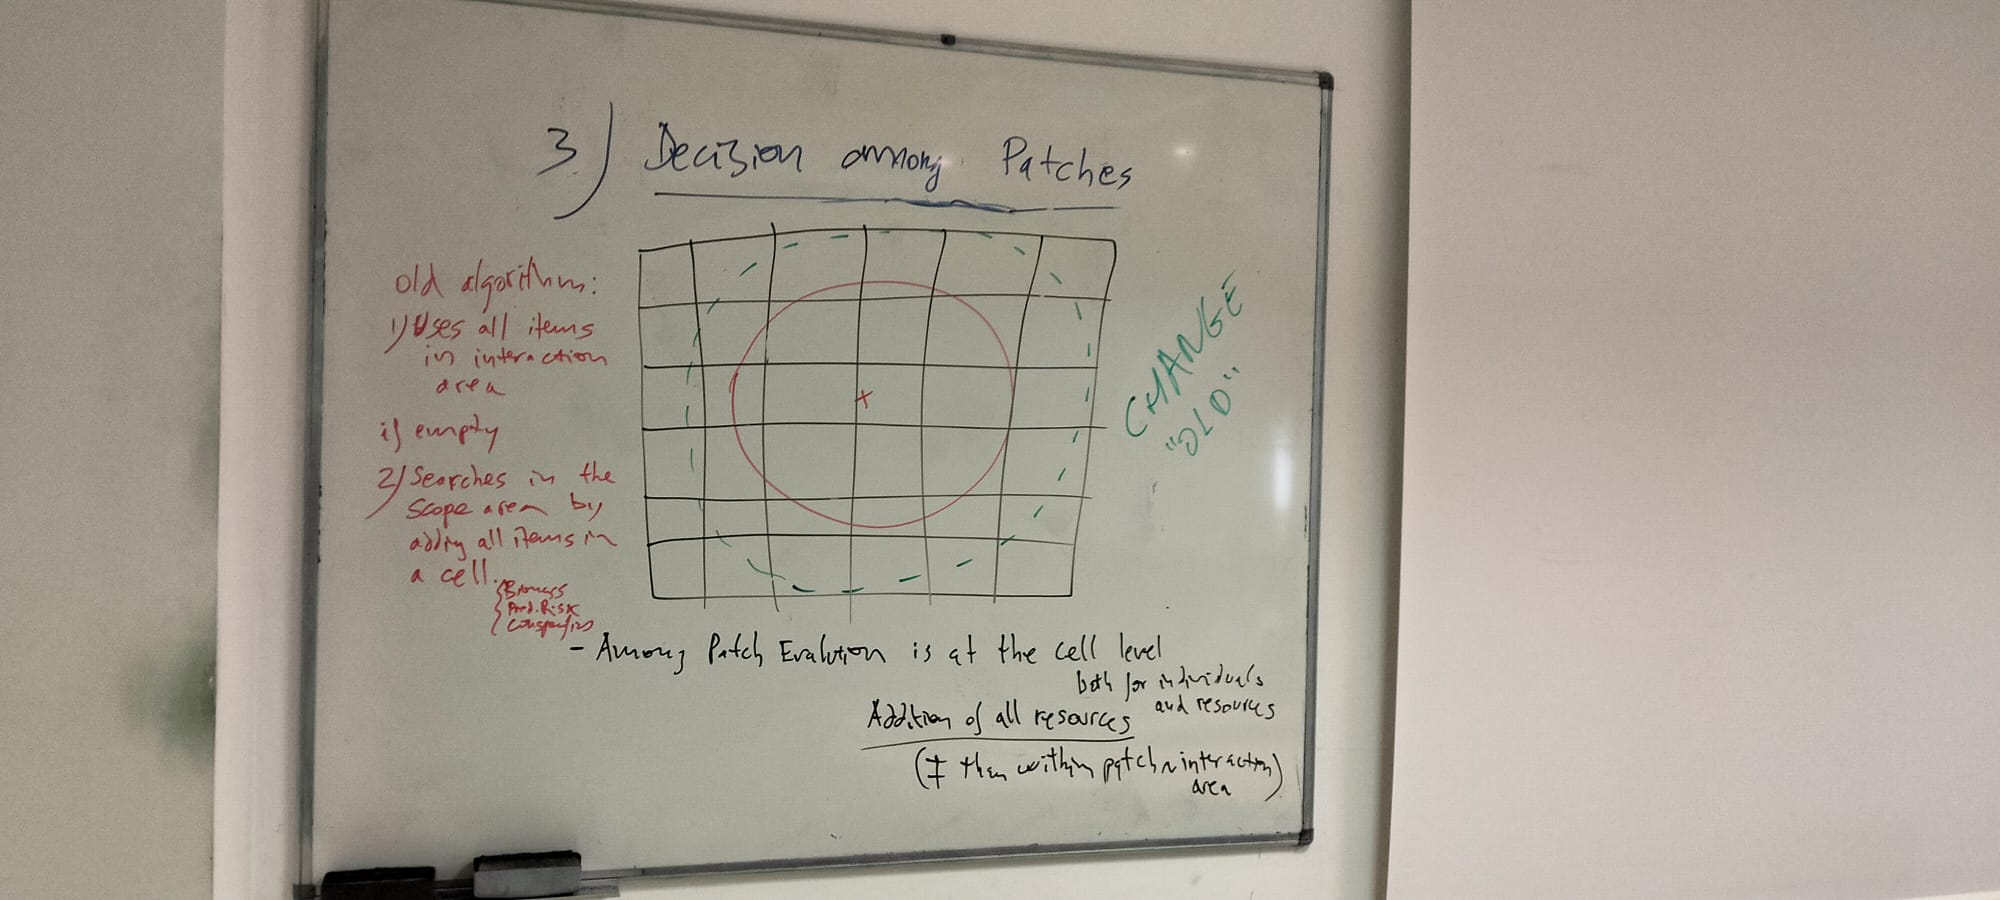 3) Decision among Patches
old algorithm:
1) Uses all items
in interaction
area
if empty
2) Searches in the
scope area by
adding all items in
a cell.
{ Biomass
{ Pred. Risk
{ Conspecifics
CHANGE
"OLD"
- Among Patch Evalution is at the cell level
both for individuals
and resources
Addition of all resources
(≠ than within patch ~ interaction)
area